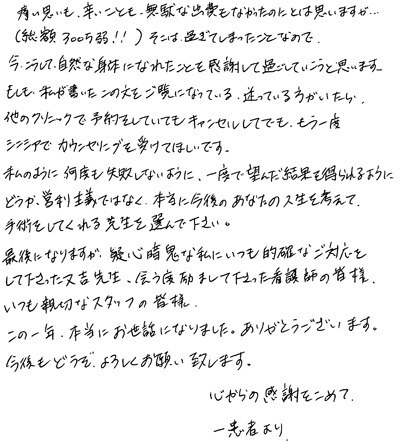 痛い思いも、辛いことも、無駄な出費もなかったのにとは思いますが…
(総額300万弱!!) そこは過ぎてしまったことなので、
今、こうして自然な身体になれたことを感謝して過ごしていこうと思います。
もしも、私が書いたこの文をご覧になっている、迷っている方がいたら、
他のクリニックで予約をしていてもキャンセルしてでも、もう一度
シンシアでカウンセリングを受けてほしいです。
私のように何度も失敗しないように、一度で望んだ結果を得られるように
どうか、営利主義ではなく、本当に今後のあなたの人生を考えて、
手術をしてくれる先生を選んで下さい。
最後になりますが、疑心暗鬼な私にいつも的確なご対応を
して下さった又吉先生、会う度励まして下さった看護師の皆様、
いつも親切なスタッフの皆様、
この一年、本当にお世話になりました。ありがとうございます。
今後もどうぞ、よろしくお願い致します。
心からの感謝をこめて、
一患者より